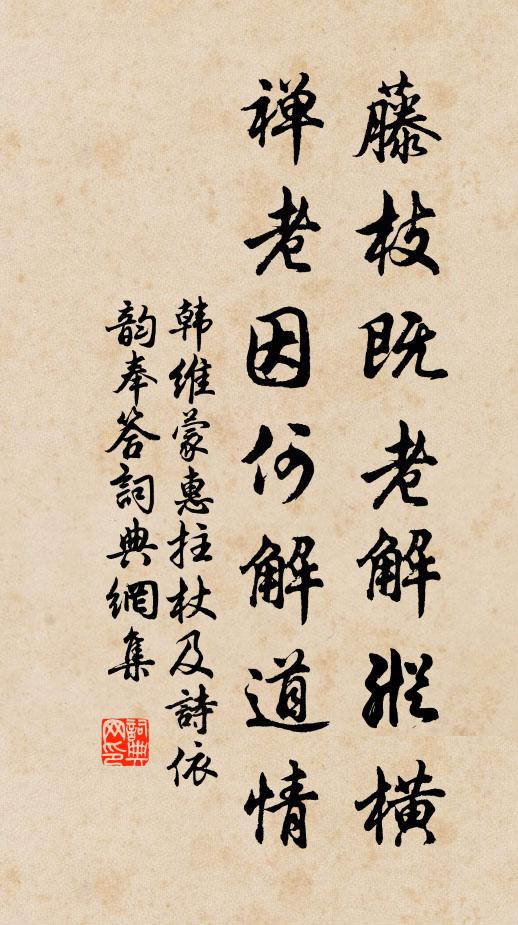 藤枝既老解縱橫
禅老因何解道情
韩维蒙惠拄杖及詩依
韵奉答詞典網集
詞典
网印